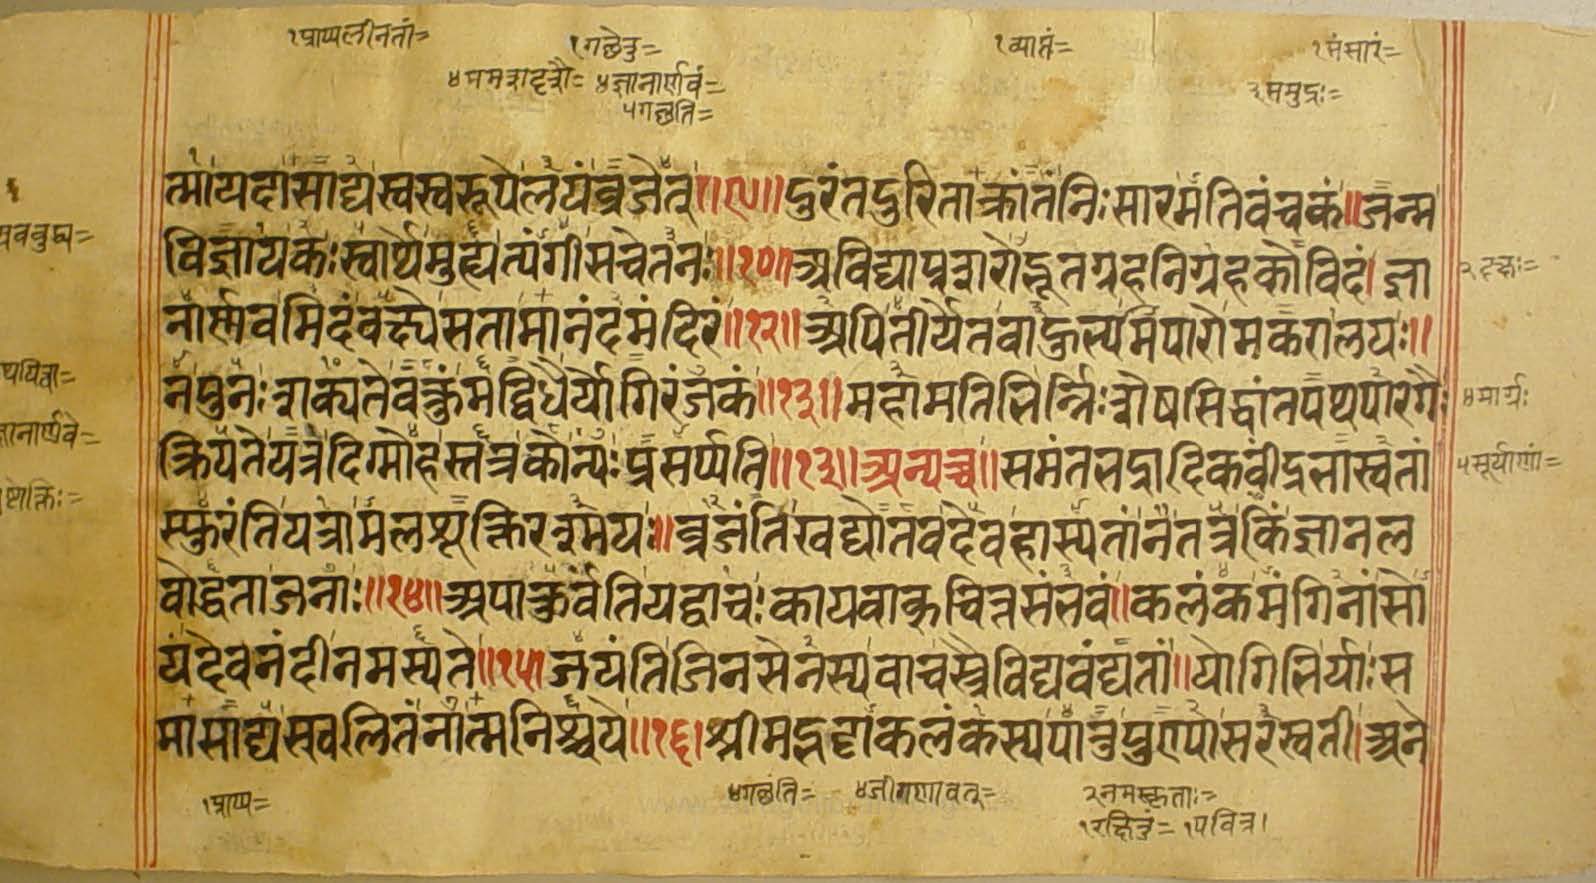 १प्राप्यलीनतां=
१गछेत्रु=
१व्याप्तं=
१संसारं=
४ज्ञानार्णवं=
३समुद्रः=
५गछति=
त्मायदासाद्यस्वस्वरूपेलयंव्रजेत्॥१०॥दुरंतदुरिताक्रांतंनिःसारमतिवंचकं॥जन्म
विज्ञायकःस्वार्थेमुह्यत्यंगीसचेतनः॥१०॥अविद्याप्रशरोद्भूतग्रहनिग्रहकोविदं।ज्ञा
नार्स्मवमिदंवक्ष्येसतामानंदमंदिरं॥१२॥अपितीर्येतबाहुभ्यमपारोमकरालयः॥
नपुनःशक्यतेवक्तुंमद्विधैर्योगिरंजकं॥१३॥महामतिभिर्न्निःशेषसिद्धांतपथपारगैः
क्रियतेयत्रदिग्मोहस्तत्रकोन्यःप्रसर्प्पति॥१३॥अन्यच्च॥समंतभद्रादिकवींद्रभास्वतां
स्फुरंतियत्रामलशूक्तिरश्मयः॥व्रजंतिखद्योतवदेवहास्यतांनतत्रकिंज्ञानल
वोद्धताजनाः॥१४॥अपाकुर्वंतियद्वाचःकायवाक्चित्तसंभवं॥कलंकमंगिनांसो
यंदेवनंदीनमस्यते॥१५॥जयंतिजिनसेनस्यवाचस्त्रैविद्यवंद्यतां॥योगिभिर्याःस
मासाद्यस्खलितंनात्मनिश्चये॥१६॥श्रीमद्भट्टाकलंकस्यपातुपुण्यासरस्वती।अने
ज्ञानार्णवे=
४मार्गः
५सूर्याणां=
१प्राप्य=
४गछंति=
२नमस्कृताः=
१रक्षितुं= १पवित्र।